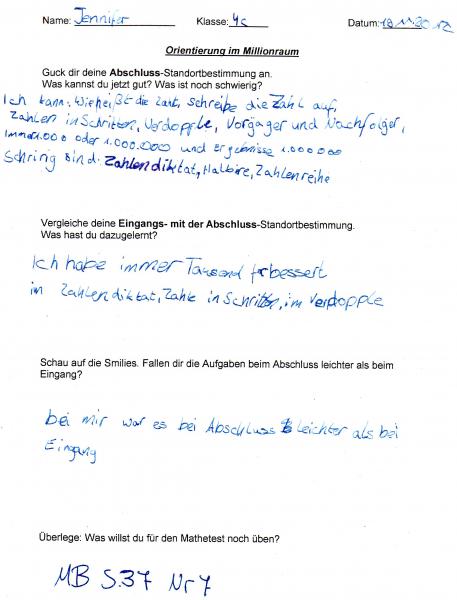 Name: Jennifer Klasse: 4c Datum: 18.11.2012
Orientierung im Millionraum
Guck dir deine Abschluss-Standortbestimmung an.
Was kannst du jetzt gut? Was ist noch schwierig?
Ich kann: Wie heißt die Zahl, schreibe die Zahl auf,
Zahlen in Schritten, Verdopple, Vorgäger und Nachfolger,
Immer 1.000 oder 1.000.000 und Ergebnisse 1.000000
Schrirg sind: Zahlendiktat, Halbire, Zahlenreihe
Vergleiche deine Eingangs- mit der Abschluss-Standortbestimmung.
Was hast du dazugelernt?
Ich habe immer Tausend ferbessert
in Zahlendiktat, Zahle in Schritten, im Verdopple
Schau auf die Smilies. Fallen dir die Aufgaben beim Abschluss leichter als beim
Eingang?
bei mir war es bei Abschluss leichter als bei
Eingang
Überlege: Was willst du für den Mathetest noch üben?
MB S.37 Nr 7